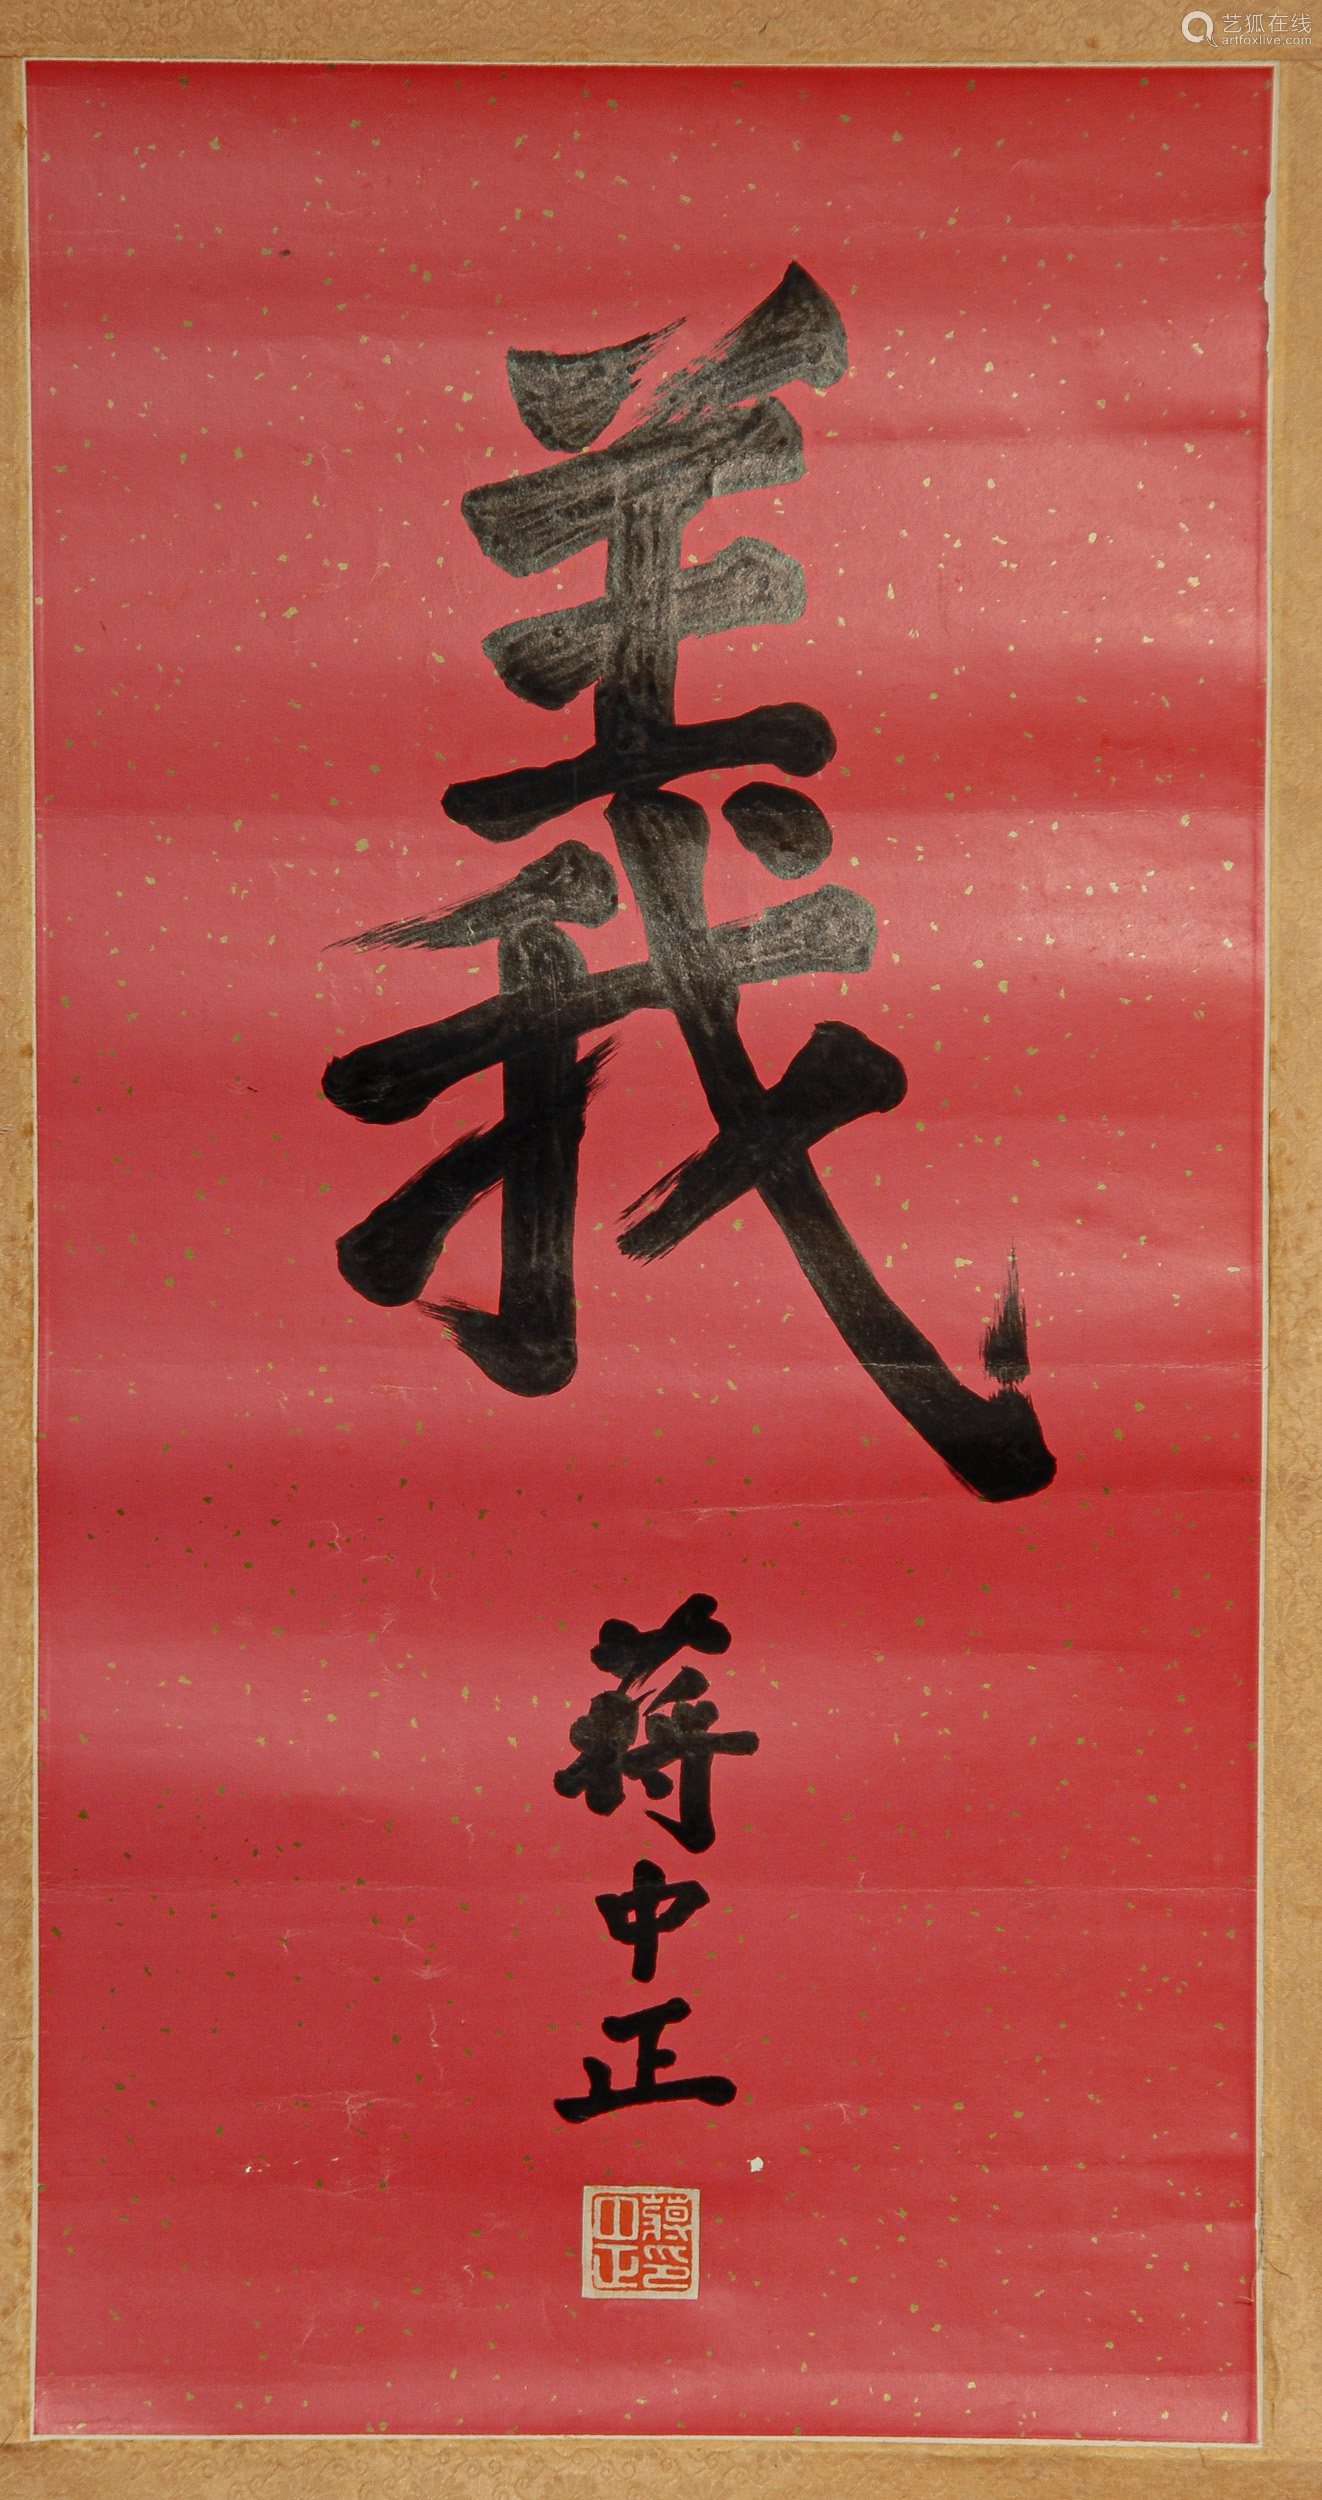 艺狐在线
artfoxlive.com
義
蔣中正
蔣中正印